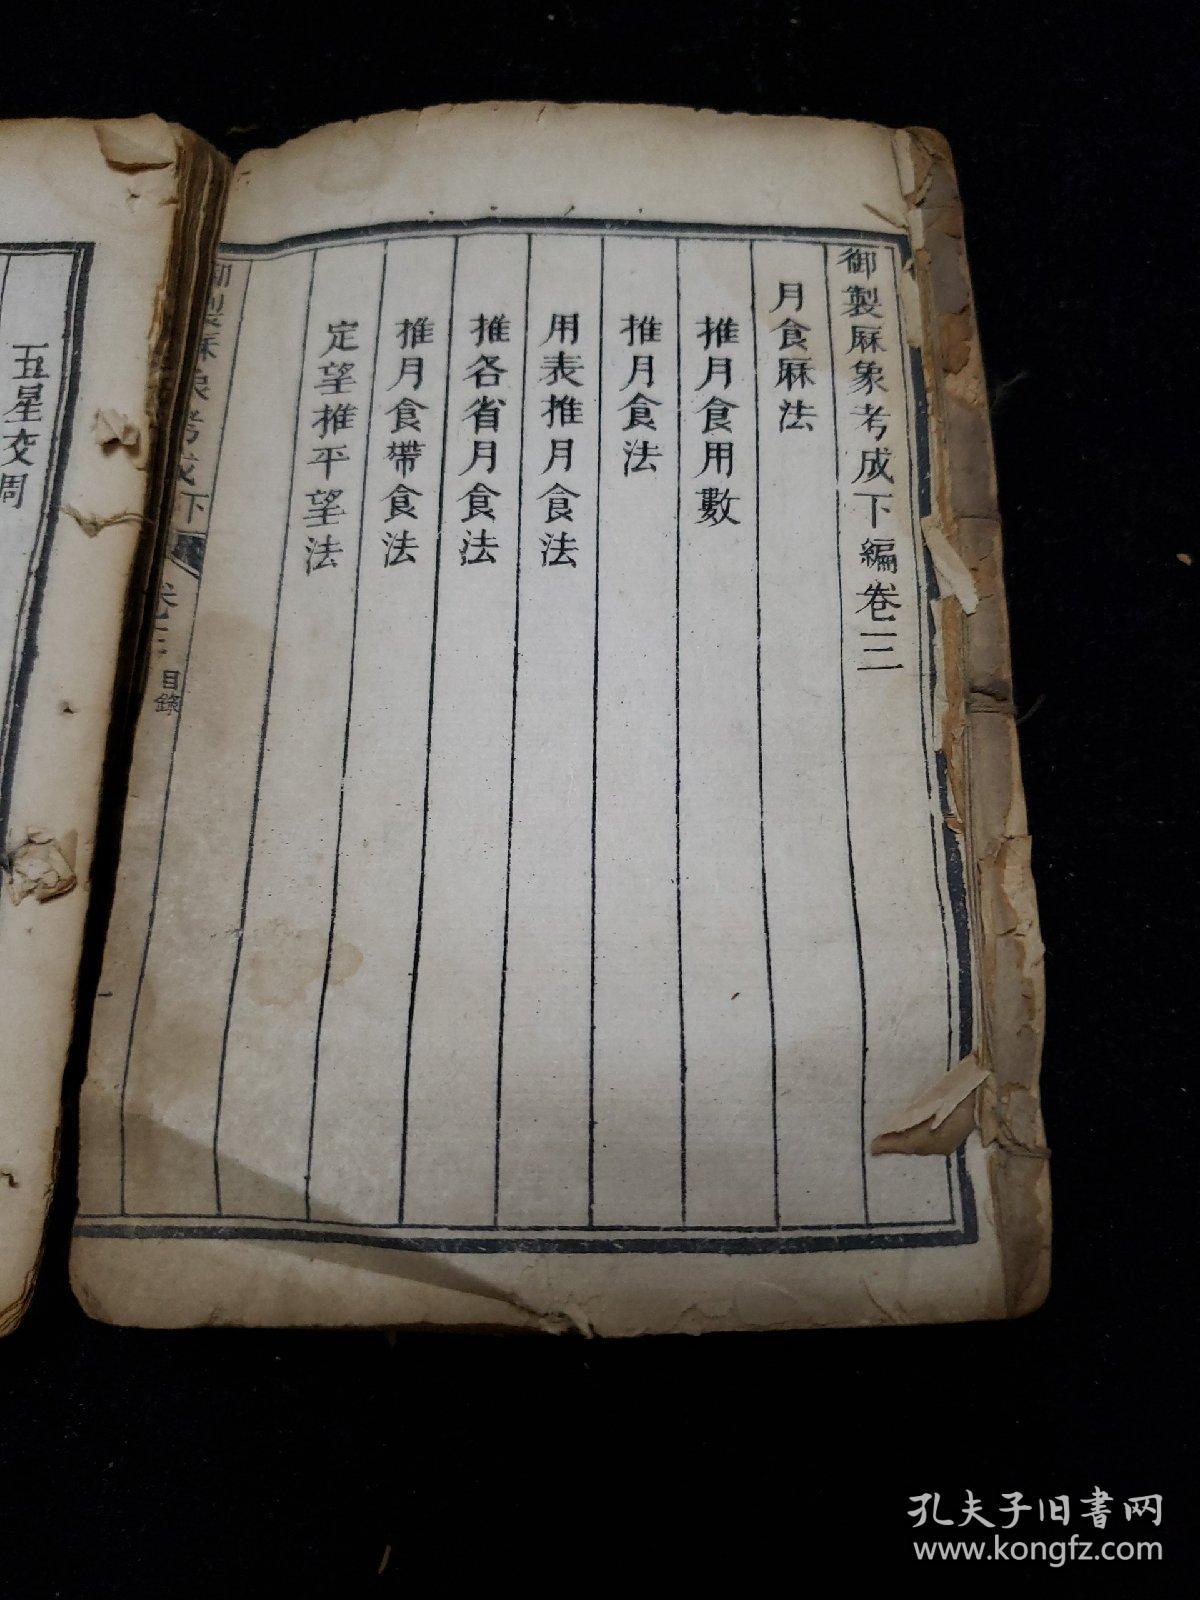 御製厤象考成下編卷三
月食厤法
推月食用數
推月食法
用表推月食法
推各省月食法
推月食帶食法
定望推平望法
御製厤象考成下
卷三
目錄
五星交周
孔夫子旧書网
www.kongfz.com